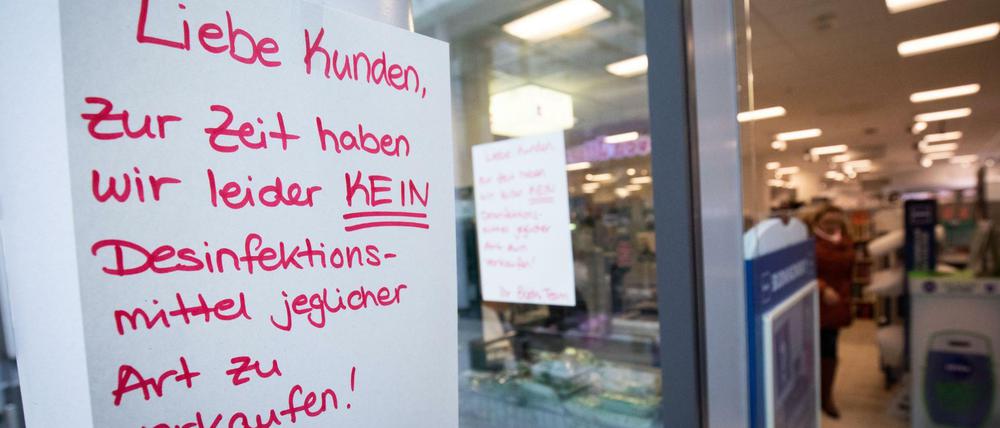 Liebe Kunden,
Zur Zeit haben
wir leider KEIN
Desinfektions-
mittel jeglicher
Art zu
verkaufen!
Liebe Kunden,
zur Zeit haben
wir leider KEIN
Desinfektions-
mittel jeglicher
Art zum
verkaufen!
Ihr Team